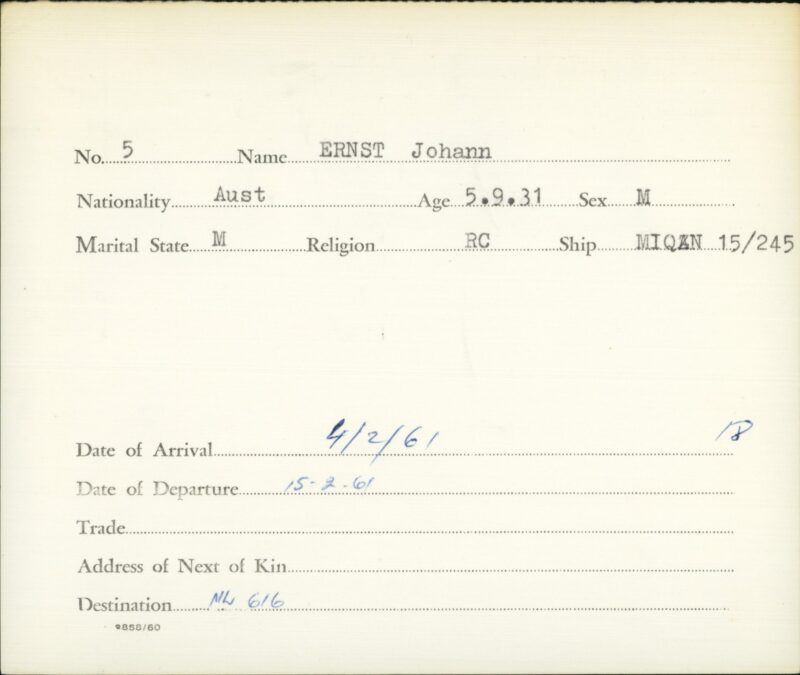 No. 5 Name ERNST Johann
Nationality Aust Age 5.9.31 Sex M
Marital State M Religion RC Ship MIQAN 15/245
Date of Arrival 4/2/61 18
Date of Departure 15-2-61
Trade
Address of Next of Kin
Destination NW 616
2858/60